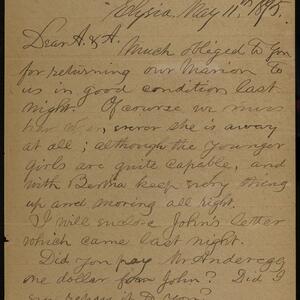 Elysia, May 11th 1895.
Dear A. & A. Much obliged to you
for returning our Marion to
us in good condition last
night. Of course we miss
her when ever she is away
at all; although the younger
girls are quite capable, and
with Bertha keep every thing
up and moving all right.
I will enclose John's letter
which came last night.
Did you pay Mr Anderegg
one dollar from John? Did I
ever repay it to you?